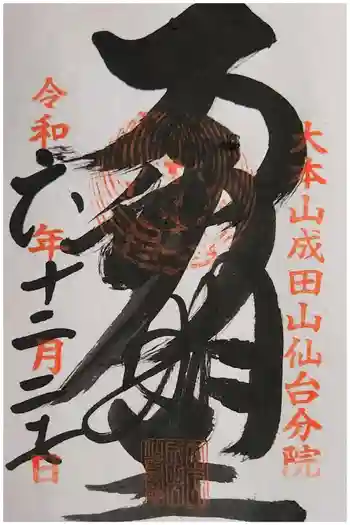 大本山成田山仙台分院
不動明王
令和六年十二月二十一日